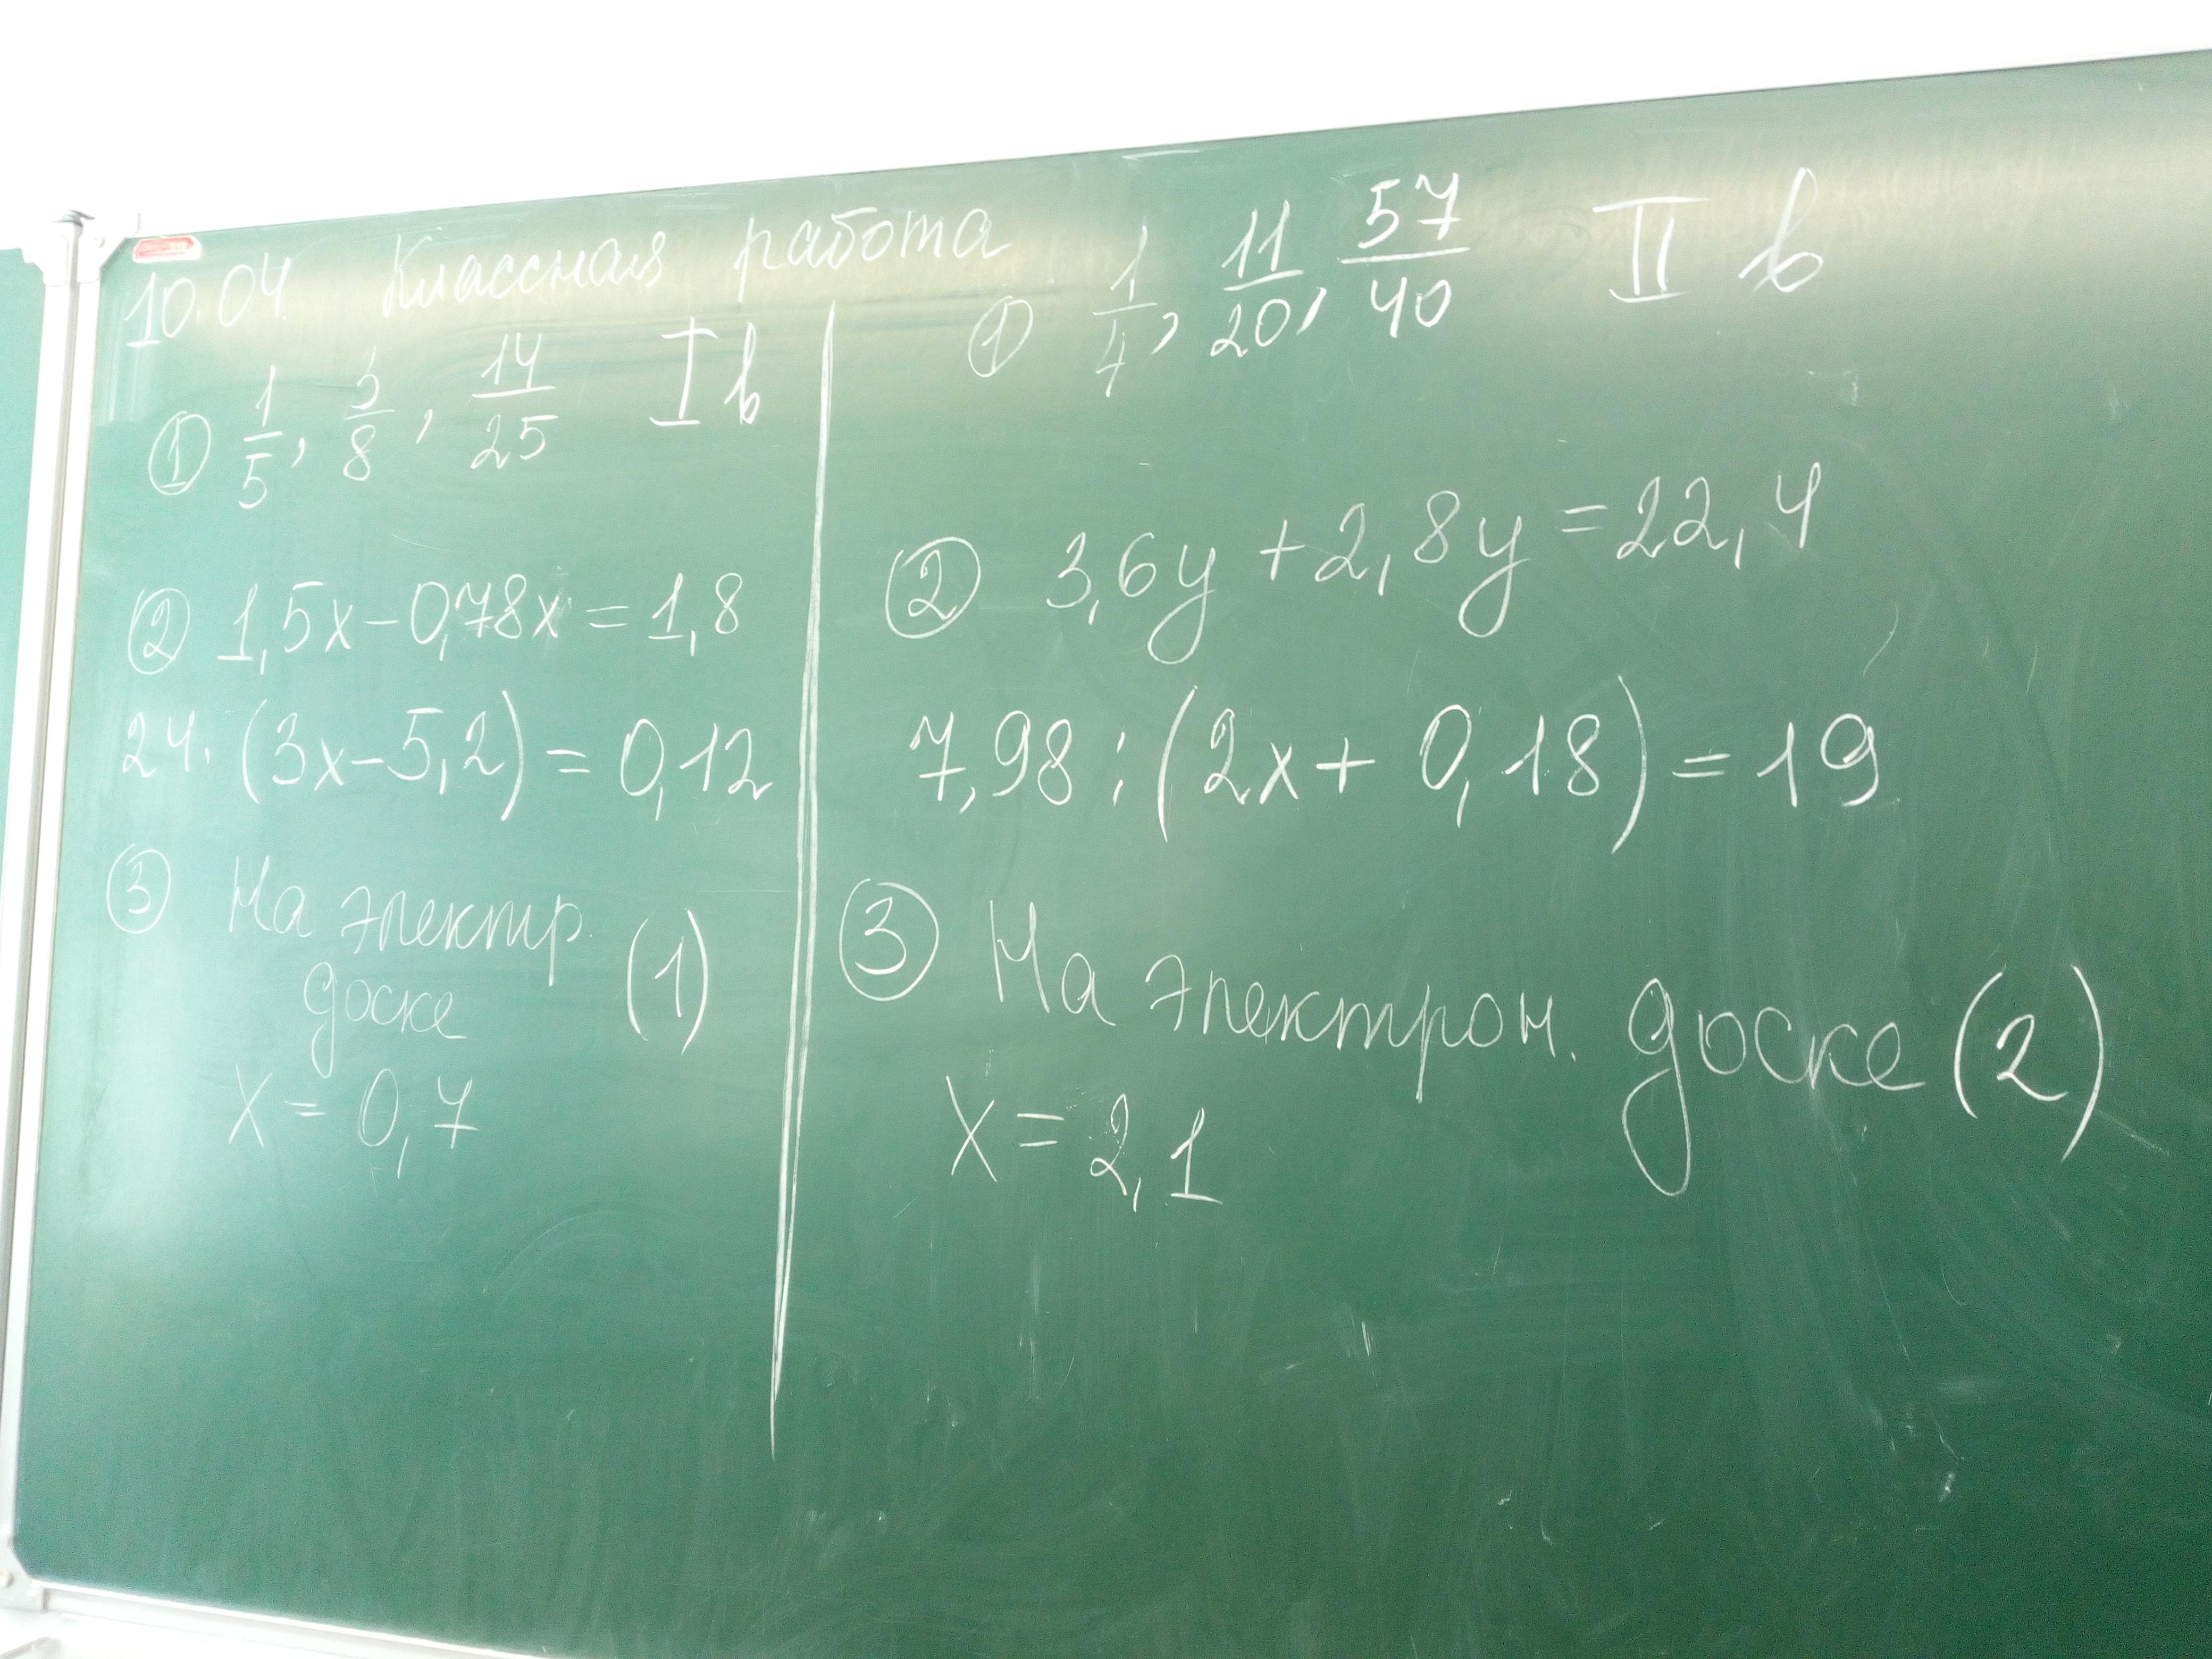 10.04 Классная работа
① 1/5, 3/8, 14/25 I в
② 1,5x-0,78x=1,8
24·(3x-5,2)=0,12
③ На электр.
доске (1)
x=0,7
① 1/4, 11/20, 57/40 II в
② 3,6y+2,8y=22,4
7,98:(2x+0,18)=19
③ На электрон. доске (2)
x=2,1